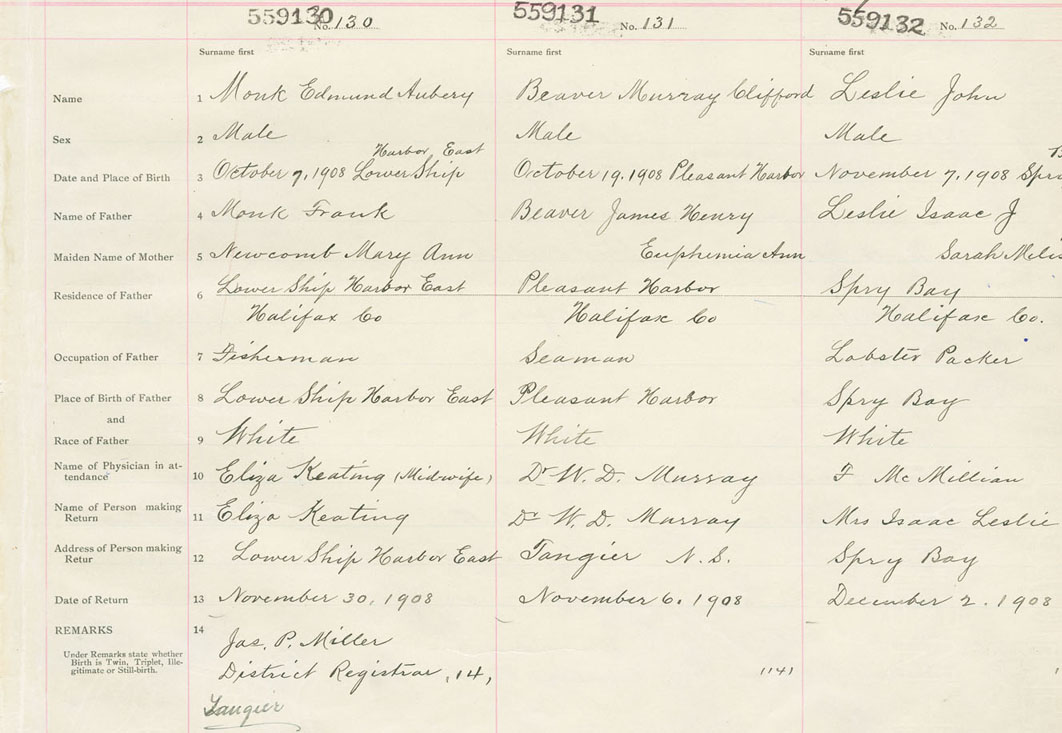 559130 No. 130 559131 No. 131 559132 No. 132
Surname first Surname first Surname first
Name 1 Monk Edmund Aubery Beaver Murray Clifford Leslie John
Sex 2 Male Male Male
Harbor East
Date and Place of Birth 3 October 7, 1908 Lower Ship October 19, 1908 Pleasant Harbor November 7, 1908
Name of Father 4 Monk Frank Beaver James Henry Leslie Isaac J
Maiden Name of Mother 5 Newcomb Mary Ann Euphemia Ann Sarah
Residence of Father 6 Lower Ship Harbor East Pleasant Harbor Spry Bay
Halifax Co Halifax Co Halifax Co.
Occupation of Father 7 Fisherman Seaman Lobster Packer
Place of Birth of Father 8 Lower Ship Harbor East Pleasant Harbor Spry Bay
and
Race of Father 9 White White White
Name of Physician in at-
tendance 10 Eliza Keating (Midwife) Dr W. D. Murray F McMillian
Name of Person making
Return 11 Eliza Keating Dr W. D. Murray Mrs Isaac Leslie
Address of Person making
Retur 12 Lower Ship Harbor East Tangier N. S. Spry Bay
Date of Return 13 November 30, 1908 November 6, 1908 December 2. 1908
REMARKS 14
Jas. P. Miller
Under Remarks state whether
Birth is Twin, Triplet, Ille-
gitimate or Still-birth.
District Registrar, 14, 1141
Tangier